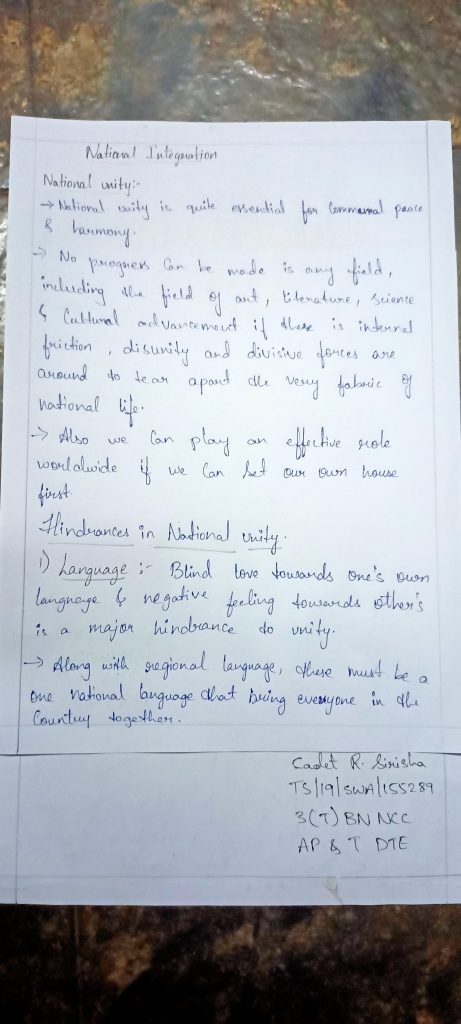 National Integration
National unity:-
→ National unity is quite essential for Communal peace
& harmony.
→ No progress Can be made is any field,
including the field of art, literature, Science
& Cultural advancement if there is internal
friction, disunity and divisive forces are
around to tear apart the very fabric of
national life.
→ Also we Can play an effective role
worldwide if we Can set our own house
first
Hindrances in National unity.
1) Language :- Blind love towards one's own
language & negative feeling towards other's
is a major hindrance to unity.
→ Along with regional language, there must be a
one national language that bring everyone in the
Country together.
Cadet R. Sirisha
TS/19/SWA/155289
3(T) BN NCC
AP & T DTE